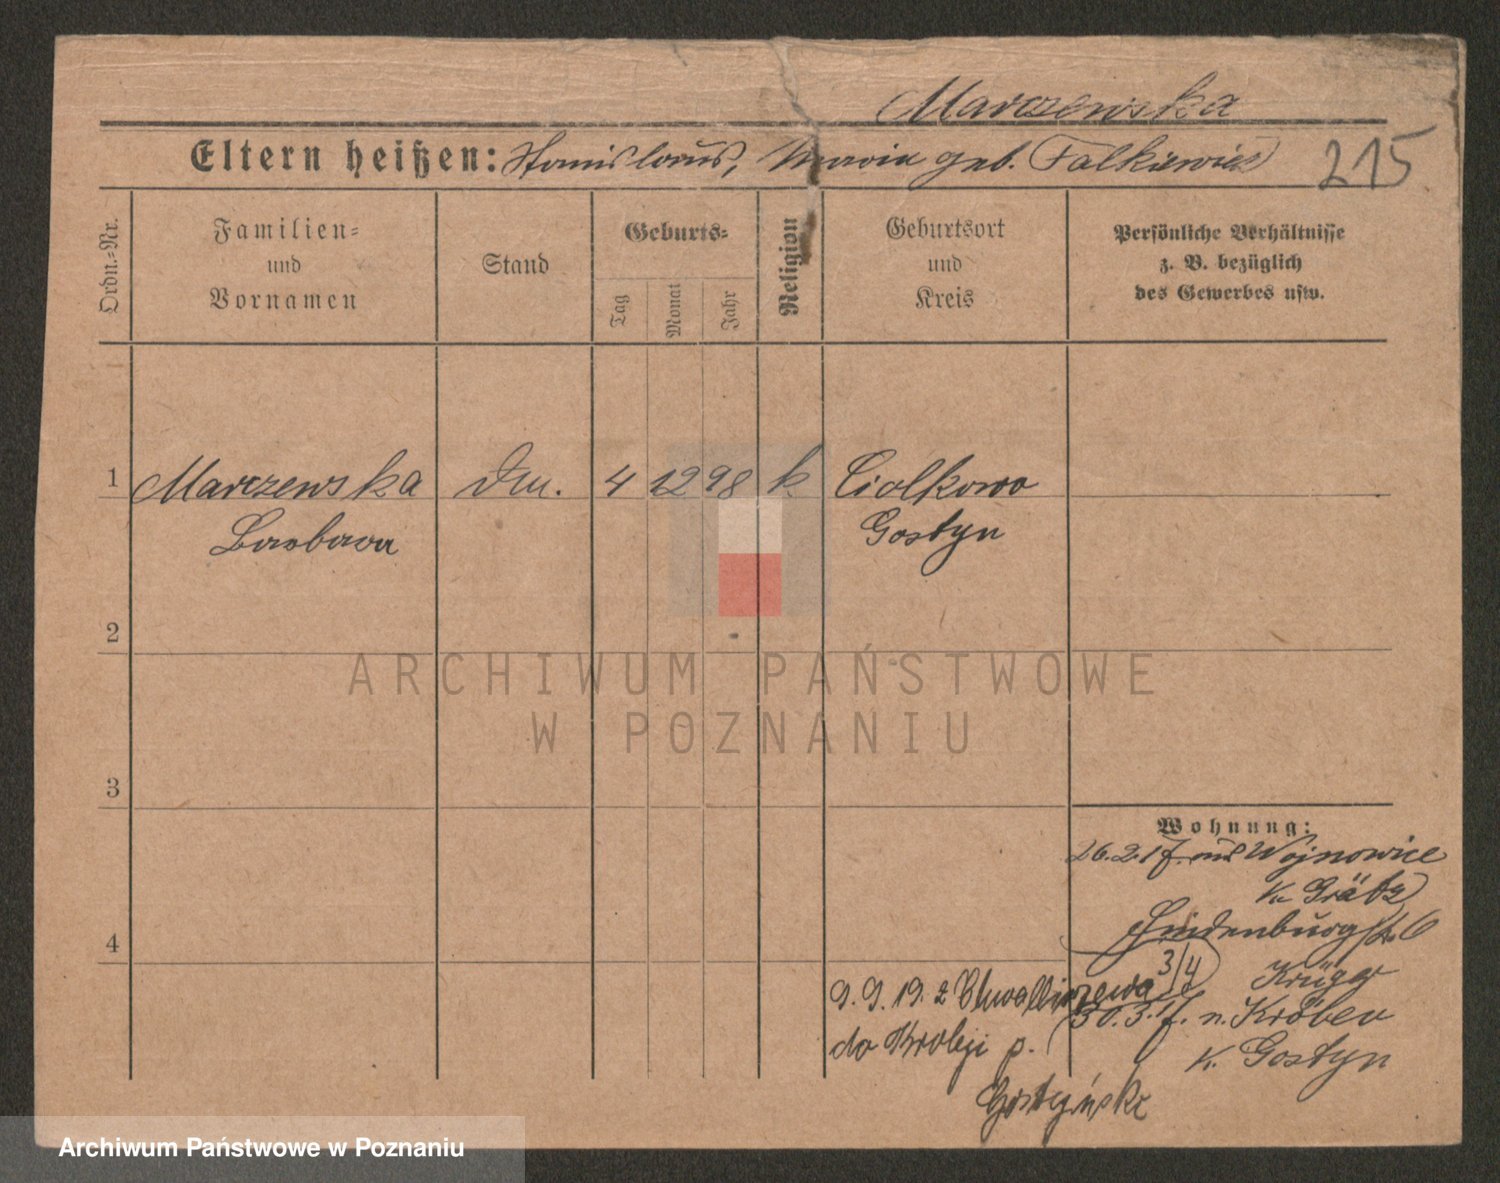 Marczewska
Eltern heißen: Stanislaus, Maria geb. Falkiewicz
215
Ordn.-Nr.
Familien-
und
Vornamen
Stand
Geburts-
Tag
Monat
Jahr
Religion
Geburtsort
und
Kreis
Persönliche Verhältnisse
z. B. bezüglich
des Gewerbes usw.
1 Marczewska 4 12 98 k. Ciolkowo
Barbara Gostyn
2
3
4
ARCHIWUM PAŃSTWOWE
W POZNANIU
Wohnung:
26.2.17. aus Wojnowice
K. Grätz
Hindenburgstr. 6
3/4 Krüger
30.3.17. n. Kröben
K. Gostyn
9. 9. 19. z
do Krobji p.
Gostyński
Archiwum Państwowe w Poznaniu